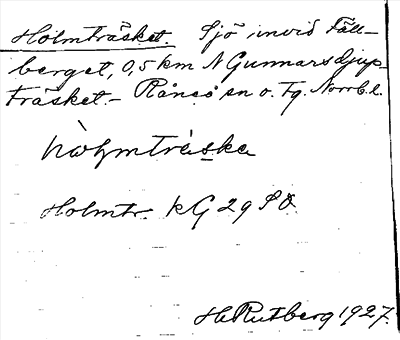 Holmträsket. Sjö invid Fäll-
berget, 0,5 km N Gunnarsdjup-
träsket.- Råneå sn o. Tg. Norrb. l.
hòlmtrèska
Holmtr. kG 29 SO
H. Rutberg 1927.